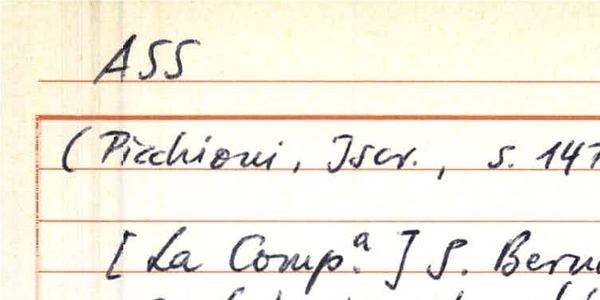 ASS
(Picchioni, Iscr., S. 147
[La Comp.ª] S. Bern